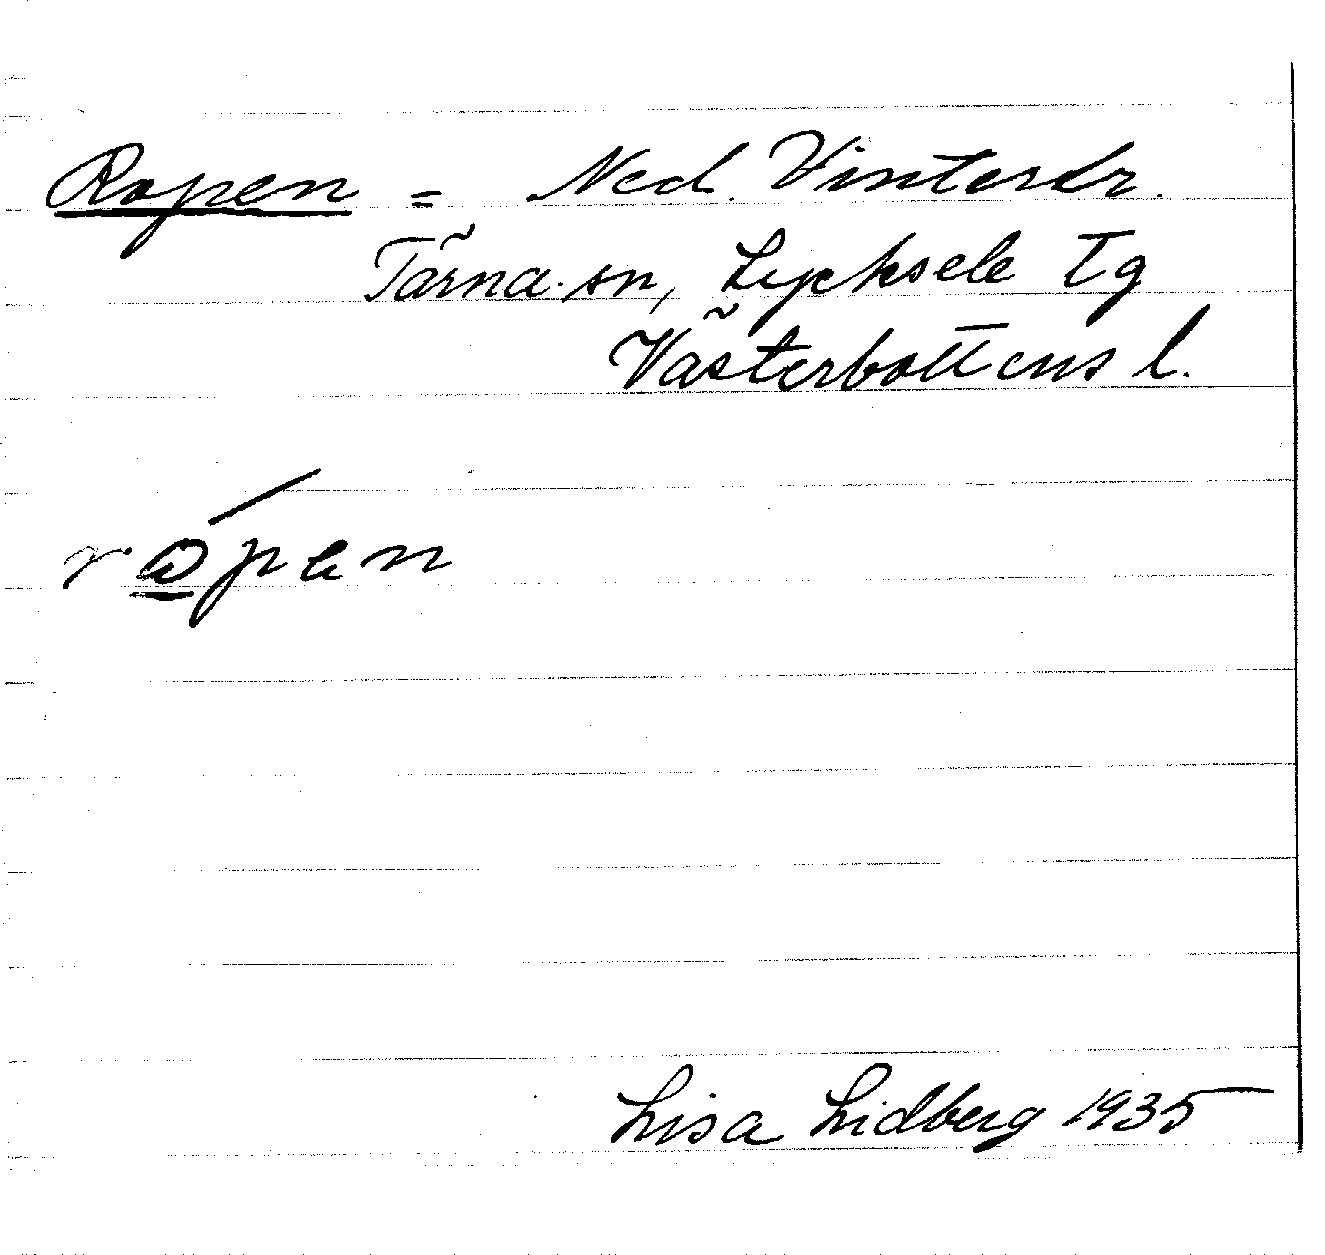 Ropen = Ned. Vinterdr.
Tärna sn, Lycksele Tg
Västerbottens l.
Lisa Lidberg 1935